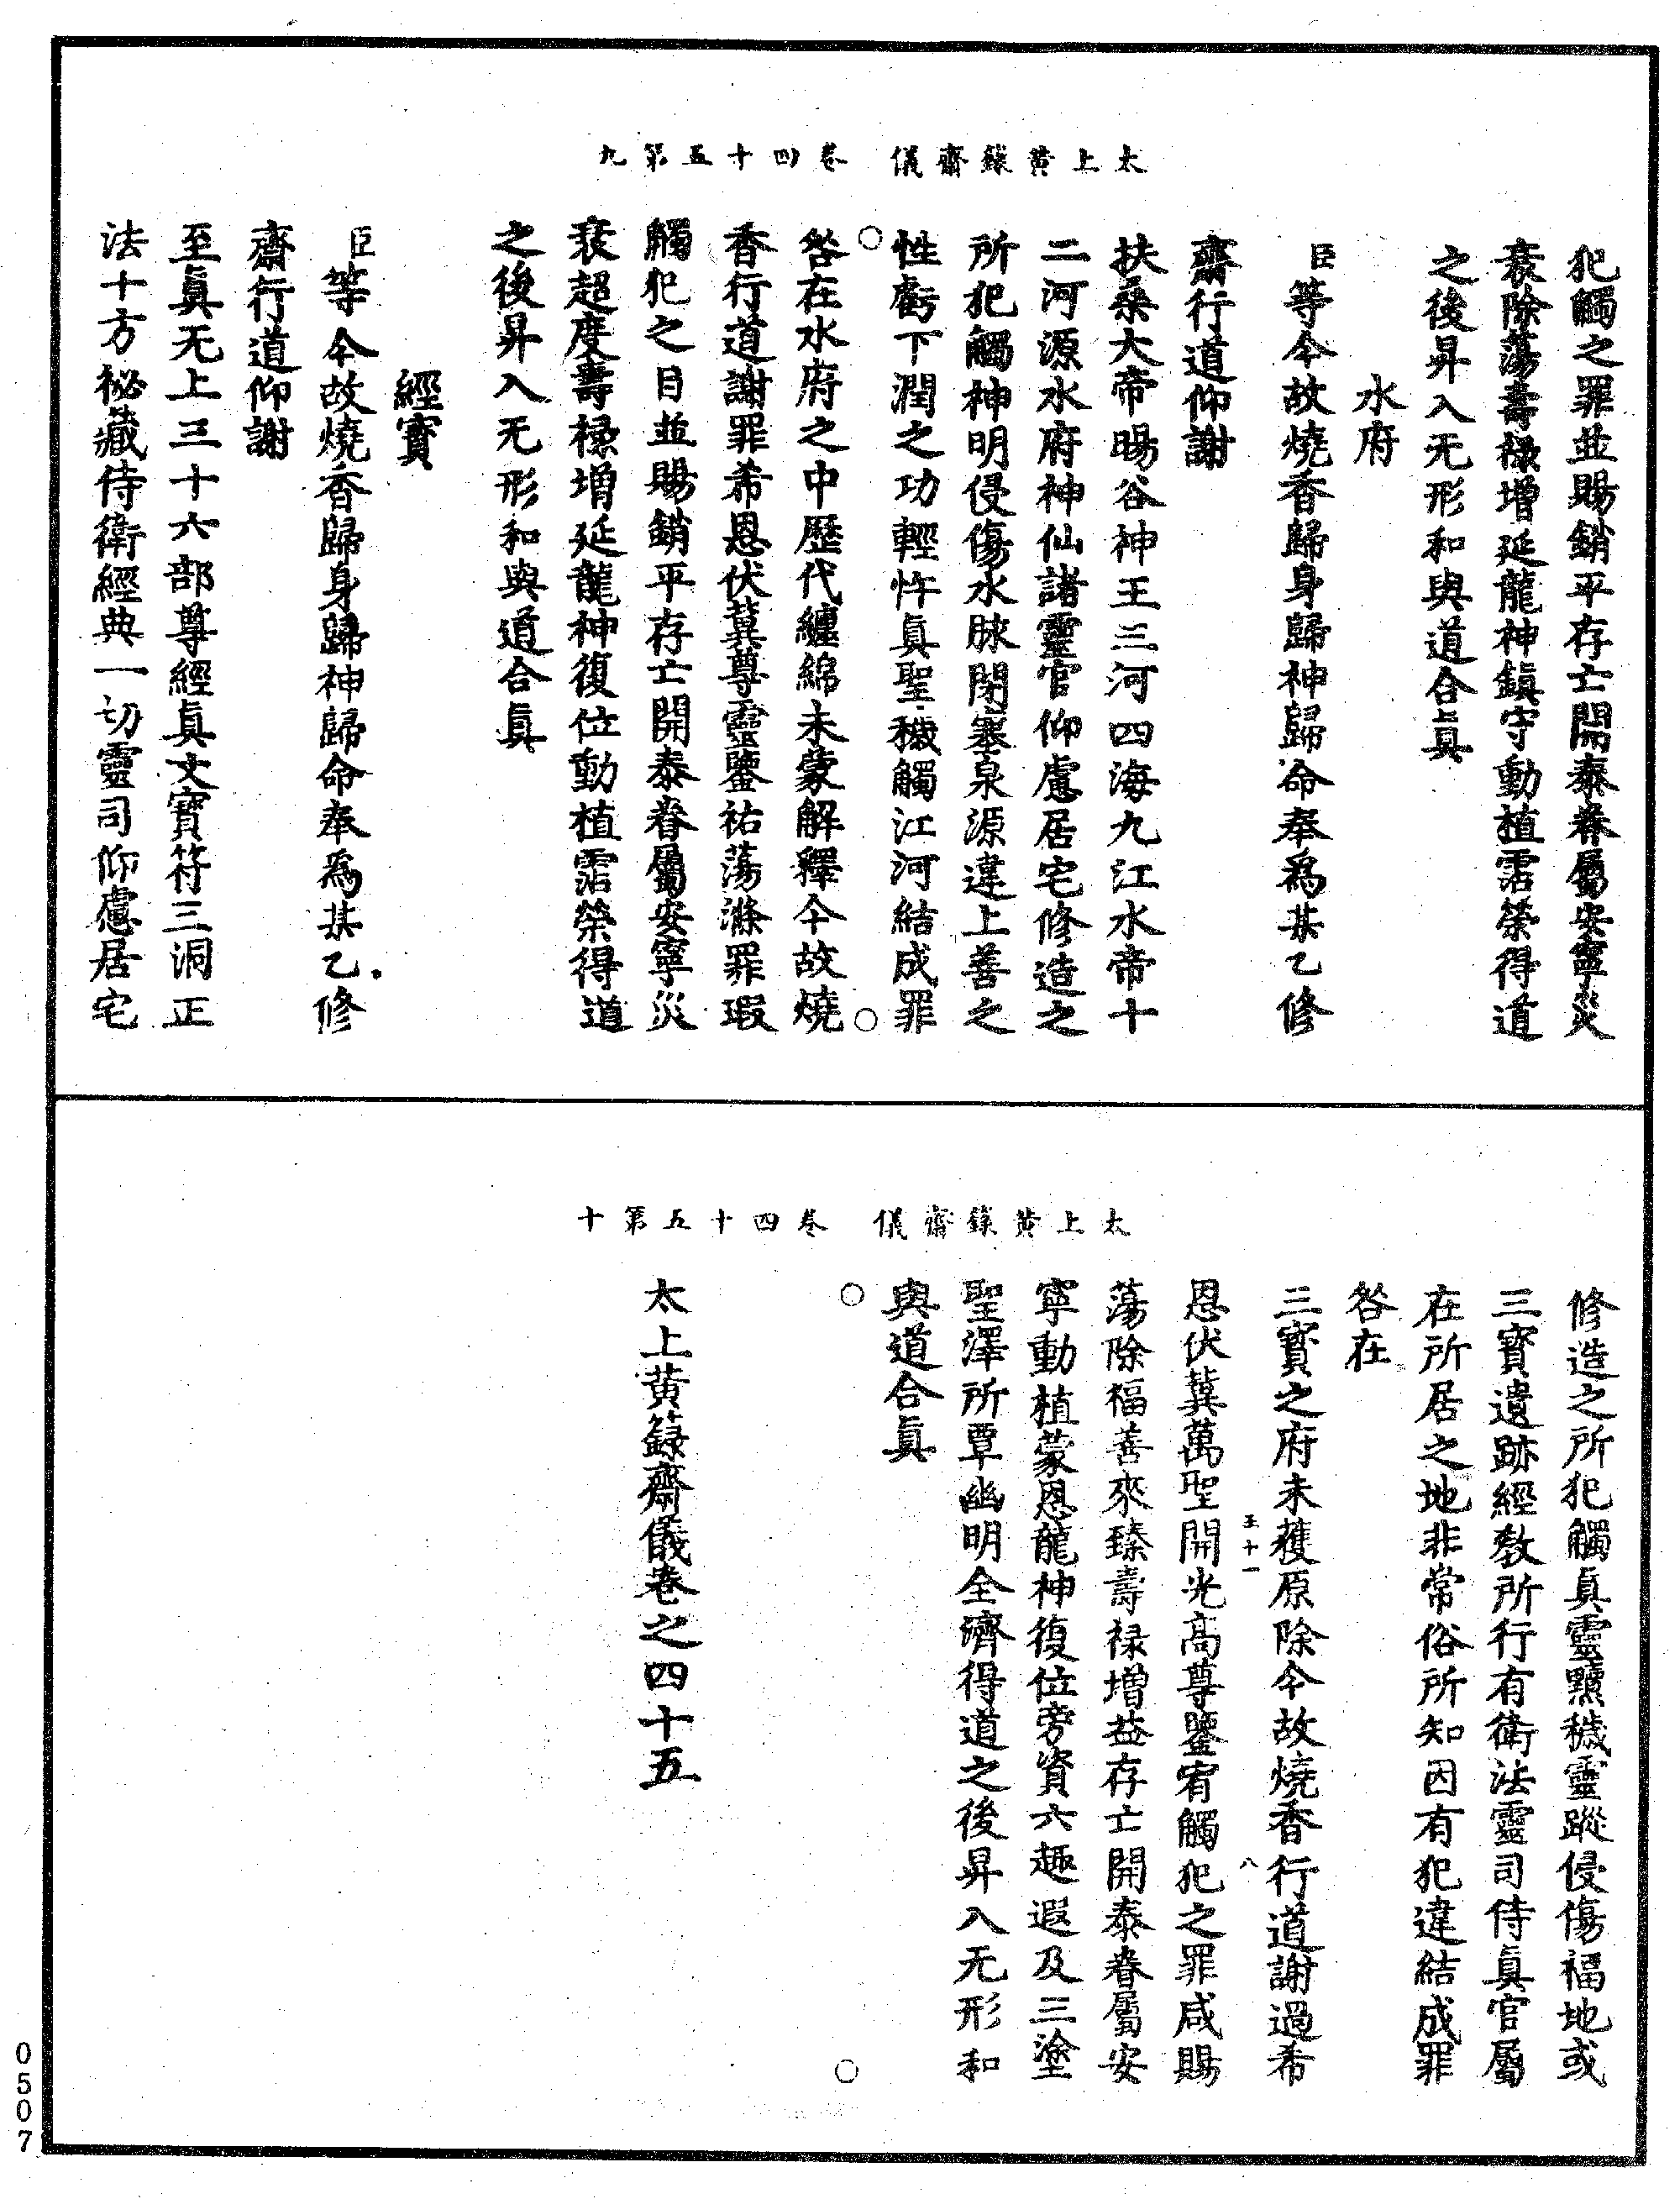 太上黃籙齋儀　卷四十五第九
犯觸之罪並賜銷平存亡開泰眷屬安寧災
衰除蕩壽祿增延龍神鎮守動植霑榮得道
之後昇入无形和與道合眞
水府
臣等今故燒香歸身歸神歸命奉爲某乙修
齋行道仰謝
扶桑大帝暘谷神王三河四海九江水帝十
二河源水府神仙諸靈官仰慮居宅修造之
所犯觸神明侵傷水脉閉塞泉源違上善之
性虧下潤之功輕忤眞聖穢觸江河結成罪
咎在水府之中歷代纏綿未蒙解釋今故燒
香行道謝罪希恩伏冀尊靈鑒祐蕩滌罪瑕
觸犯之目並賜銷平存亡開泰眷屬安寧災
衰超度壽祿增延龍神復位動植霑榮得道
之後昇入无形和與道合眞
經寳
臣等今故燒香歸身歸神歸命奉爲某乙修
齋行道仰謝
至眞无上三十六部尊經眞文寳符三洞正
法十方祕藏侍衛經典一切靈司仰慮居宅
太上黃籙齋儀　卷四十五第十
修造之所犯觸眞靈黷穢靈蹤侵傷福地或
三寳遺跡經敎所行有衛法靈司侍眞官屬
在所居之地非常俗所知因有犯違結成罪
咎在
三寳之府未獲原除今故燒香行道謝過希
王十一　八
恩伏冀萬聖開光高尊鑒宥觸犯之罪咸賜
蕩除福善來臻壽祿增益存亡開泰眷屬安
寧動植蒙恩龍神復位旁資六趣遐及三塗
聖澤所覃幽明全濟得道之後昇入无形和
與道合眞
太上黃籙齋儀卷之四十五
0507